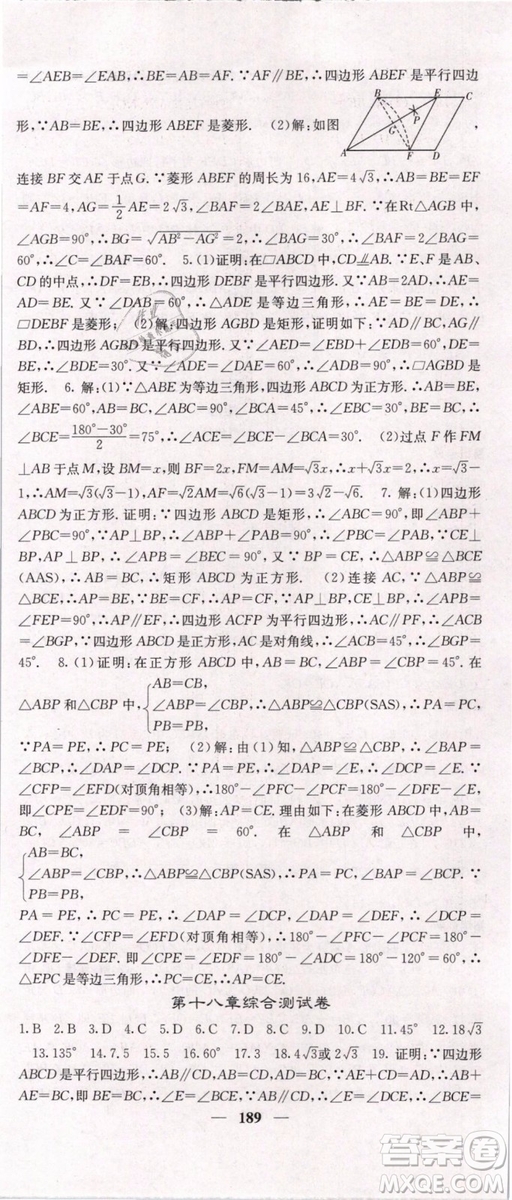 =∠AEB=∠EAB,∴BE=AB=AF.∵AF∥BE,∴四边形 ABEF 是平行四边
形,∵AB=BE,∴四边形 ABEF 是菱形. (2)解:如图
B E C P G A F D
,
连接 BF 交 AE 于点 G.∵菱形 ABEF 的周长为 16,AE=4√3,∴AB=BE=EF=
AF=4,AG=1/2AE=2√3,∠BAF=2∠BAE,AE⊥BF.∵在Rt△ABG 中,
∠AGB=90°,∴BG=√(AB²-AG²)=2,∴∠BAG=30°,∴∠BAF=2∠BAE=
60°,∴∠C=∠BAF=60°. 5.(1)证明:在□ABCD 中,CD⫽AB.∵E、F 是AB、
CD 的中点,∴DF=EB,∴四边形 DEBF 是平行四边形.又∵AB=2AD,∴AE=
AD=EB.又∵∠DAB=60°,∴△ADE 是等边三角形,∴AE=DE,∴DE=EB,∴
□DEBF 是菱形; (2)解:四边形 AGBD 是矩形,证明如下:∵AD∥BC,AG∥BD,
∴四边形 AGBD 是平行四边形.又∵∠ADB=60°+30°=90°,∴□AGBD 是矩
形. 6. 解:(1)∵△ABE 为等边三角形,四边形 ABCD 为正方形.∴AB=BE=BC,
∠ABE=60°,∠ABC=90°,∠BCA=45°,∴∠CBE=∠ABC-∠ABE=30°,∴
∠BCE=(180°-30°)/2=75°,∴∠ACE=∠BCE-∠BCA=30°; (2)过点 F 作 FM
⊥AB 于点 M,设 BM=x,则 BF=2x,FM=AM=√3x,∴x+√3x=2,∴x=√3-
1,∴AM=√3(√3-1),AF=√2·√3(√3-1)=3√2-√6. 7. 解:(1)四边形
ABCD 为正方形.证明:∵四边形 ABCD 为矩形,∴∠ABC=90°,即∠ABP+
∠CBE=90°,∵AP⊥BP,∴∠ABP+∠BAP=90°,∴∠BAP=∠CBE,∵CE⊥
BP,AP⊥BP,∴∠APB=∠BEC=90°,又∵AP=BE,∴△ABP≌△BCE
(AAS),∴AB=BC,∴矩形 ABCD 为正方形. (2)连接 AC,∵△ABP≌△BCE,
∴AP=BE,∵BE=CF,∴AP=CF.∵AP⊥BP,CE⊥BP,∴∠APE=
∠FEP=90°,∴AP∥CF,∴四边形 ACFP 为平行四边形,∴AC∥PF,∴∠BAC=
∠BGP,∵四边形 ABCD 是正方形,AC 是对角线,∴∠BAC=45°,∴∠BGP=
45°. 8.(1)证明:在正方形 ABCD 中,AB=BC,∠ABP=∠CBP=45°.在
△ABP 和△CBP 中,{AB=CB,
∠ABP=∠CBP,∴△ABP≌△CBP(SAS),∴PA=PC,
PB=PB,
∵PA=PE,∴PC=PE; (2)解:由(1)知,△ABP≌△CBP,∴∠BAP=
∠BCP,∴∠DAP=∠DCP,∵PA=PE,∴∠DAP=∠E,∴∠DCP=∠E,
∵∠CFP=∠EFD(对顶角相等),∴180°-∠CFP-∠PCF=180°-∠EFD-∠E,
即∠CPE=∠EDF=90°; (3)解:AP=CE. 理由如下:在菱形 ABCD 中,AB=
BC, ∠ABP = ∠CBP = 60°. 在 △ABP 和 △CBP 中,
{AB=BC,
∠ABP=∠CBP,∴△ABP≌△CBP(SAS),∴PA=PC,∠BAP=∠BCP,∵
PB=PB,
PA=PE,∴PC=PE,∴∠DAP=∠DCP,∴∠DAP=∠DEP,∴∠DCP
=∠DEF.∵∠CFP=∠EFD(对顶角相等),∴180°-∠CFP-∠PCF=180°-
∠DFE-∠DEF,即∠CPE=∠EDF=180°-∠ADC=180°-120°=60°,∴
△EPC 是等边三角形,∴PC=CE,∴AP=CE.
第十八章综合测试卷
1.B 2.B 3.D 4.C 5.D 6.C 7.D 8.C 9.D 10.C 11.45° 12.18√3
13.135° 14.7.5 15.2 16.60° 17.3 18.4√3或2√3 19. 证明:∵四边形
ABCD 是平行四边形,∴AB∥CD,AB=CD,∵AE+CD=AD,∴AE+AB=
AD,又∵AE+DE=AD,∴AB=DE,即 BE=CD,∴∠ABE=∠AEB,∠BCE=
189
答案圈
MXQE.COM